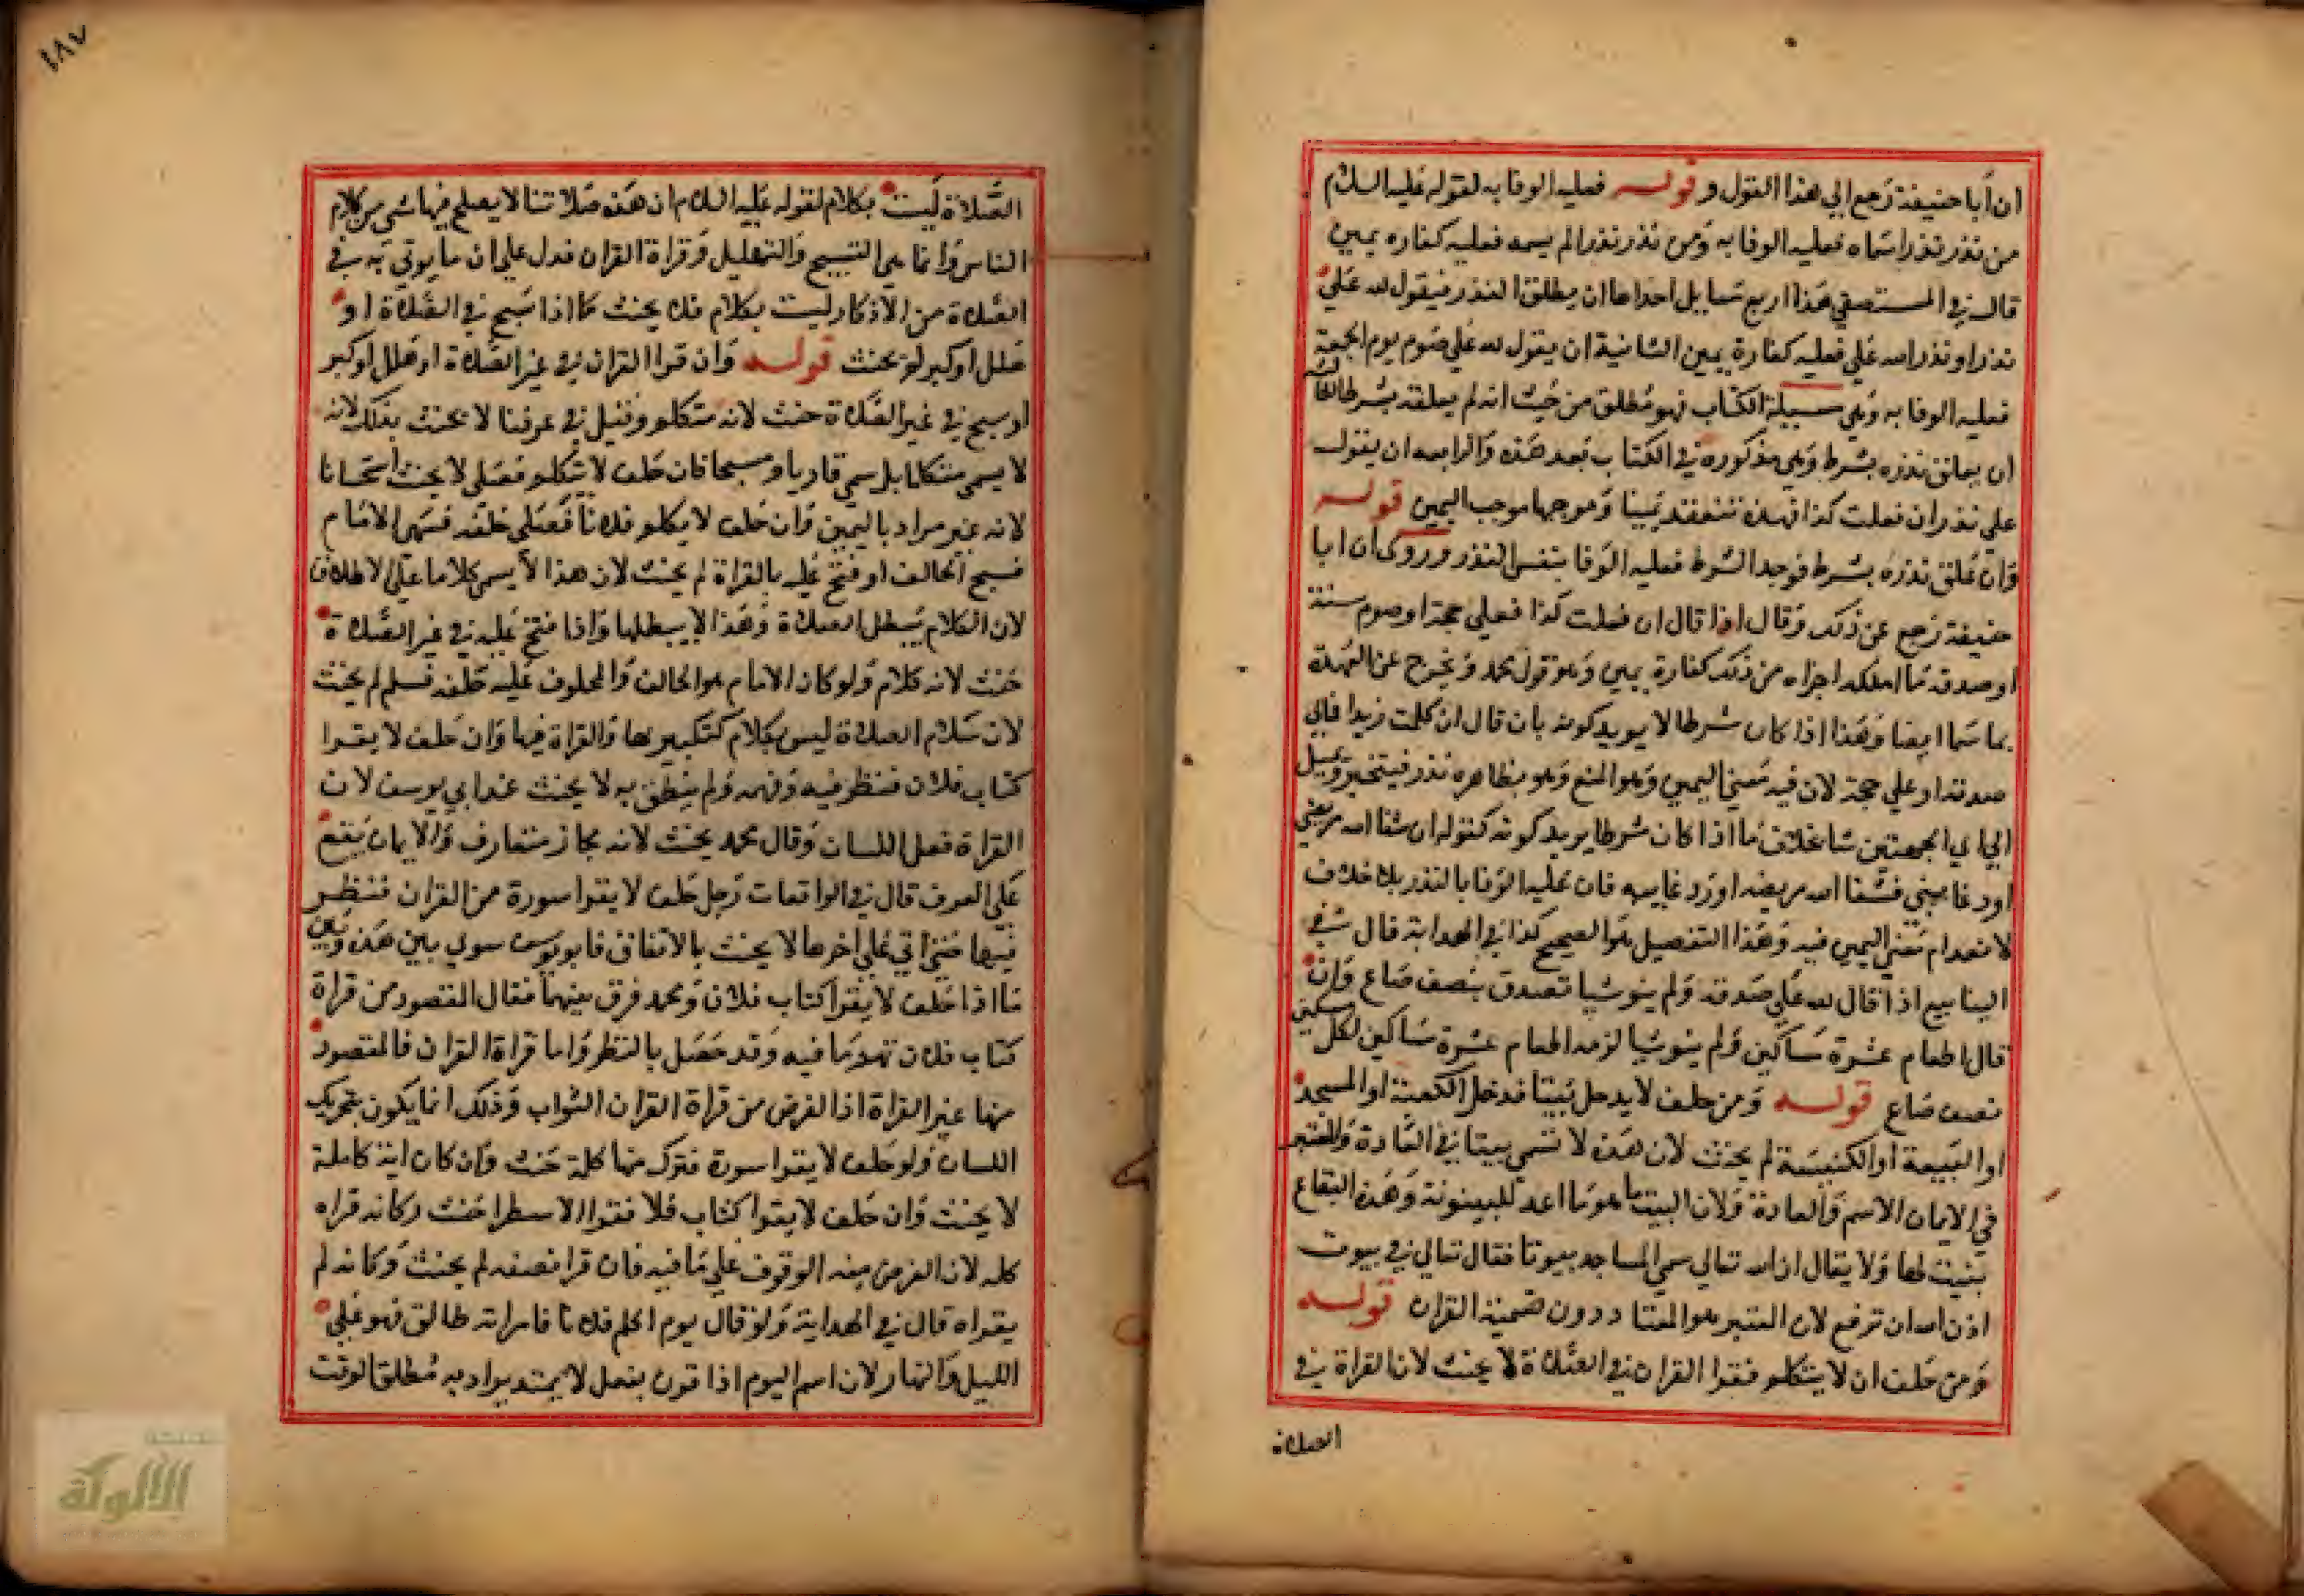 ان أبا حنيفة رجع الي هذا القول و قوله فعليه الوفا به لقوله عليه السلام
من نذر نذرا سماه فعليه الوفا به ومن نذر نذرا لم يسمه فعليه كفاره يمين
قال في المستصفي هذا اربع مسايل احداها ان يطلق النذر فيقول لله علي
نذر او نذر الله علي فعليه كفارة يمين الثانية ان يقول لله علي صوم يوم الجمعة
فعليه الوفا به وهي مسيلة الكتاب فهو مطلق من حيث انه لم يعلقه بشرط الثالثة
ان يعلق نذره بشرط وهي مذكوره في الكتاب بعد هذه والرابعه ان يقول
علي نذر ان فعلت كذا فهذه تنعقد يمينا وموجبها موجب اليمين قوله
وان علق نذره بشرط فوجد الشرط فعليه الوفا بنفس النذر وروي ان ابا
حنيفة رجع عن ذلك وقال اذا قال ان فعلت كذا فعلي حجة او صوم سنة
او صدقة ما املكه اجزاه من ذلك كفارة يمين وهو قول محمد ويخرج عن العهدة
بما سما ايضا وهذا اذا كان شرطا لا يريد كونه بان قال ان كلمت زيدا فمالي
صدقة او علي حجة لان فيه معني اليمين وهو المنع وهو بظاهره نذر فيتخير ويميل
الي اي الجهتين شا بخلاف ما اذا كان شرطا يريد كونه كقوله ان شفا الله مريضي
او رد غايبي فشفا الله مريضه او رد غايبه فان عليه الوفا بالنذر بلا خلاف
لانعدام معني اليمين فيه وهذا التفصيل هو الصحيح كذا في الهداية قال في
الينابيع اذا قال لله علي صدقة ولم ينو شيا تصدق بنصف صاع وان
قال اطعام عشرة مساكين ولم ينو شيا لزمه اطعام عشرة مساكين لكل مسكين
نصف صاع قوله ومن حلف لا يدخل بيتا فدخل الكعبة او المسجد
او البيعة او الكنيسة لم يحنث لان هذه لا تسمي بيتا في العادة والمعتبر
في الايمان الاسم والعادة ولان البيت ما هو ما اعد للبيتوتة وهذه البقاع
بنيت لها ولا يقال ان الله تعالي سمي المساجد بيوتا فقال تعالي في بيوت
اذن الله ان ترفع لان المعتبر هو المعتاد دون تسمية القران قوله
ومن حلف ان لا يتكلم فقرا القران في الصلاة لا يحنث لان القراة في
الصلاة
١٨٧
الصلاة ليست بكلام لقوله عليه السلام ان هذه صلاتنا لا يصلح فيها شي من كلام
الناس وانما هي التسبيح والتهليل وقراة القران فدل علي ان ما يوتي به في
الصلاة من الاذكار ليست بكلام فلا يحنث كما اذا سبح في الصلاة او
هلل او كبر لم يحنث قوله وان قرا القران في غير الصلاة او هلل او كبر
او سبح في غير الصلاة حنث لانه متكلم وقيل في عرفنا لا يحنث بذلك لانه
لا يسمي متكلما بل سمي قاريا و مسبحا فان حلف لا يتكلم فصلي لا يحنث استحسانا
لانه غير مراد باليمين وان حلف لا يكلم فلانا فصلي خلفه فسهي الامام
فسبح الحالف او فتح عليه بالقراة لم يحنث لان هذا لا يسمي كلاما علي الاطلاق
لان الكلام يبطل الصلاة وهذا لا يبطلها واذا فتح عليه في غير الصلاة
حنث لانه كلام ولو كان الامام هو الحالف والمحلوف عليه خلفه فسلم لم يحنث
لان سلام الصلاة ليس بكلام كتكبيرها والقراة فيها وان حلف لا يقرا
كتاب فلان فنظر فيه وفهمه ولم ينطق به لا يحنث عند ابي يوسف لان
القراة فعل اللسان وقال محمد يحنث لانه مجاز متعارف والايمان يقع
علي العرف قال في الواقعات رجل حلف لا يقرا سورة من القران فنظر
فيها حتي اتي علي اخرها لا يحنث بالاتفاق فابو يوسف سوي بين هذه وبين
ما اذا حلف لا يقرا كتاب فلان ومحمد فرق بينهما فقال المقصود من قراة
كتاب فلان فهم ما فيه وقد حصل بالنظر واما قراة القران فالمقصود
منها عين القراة اذ الغرض من قراة القران الثواب وذلك انما يكون بتحريك
اللسان ولو حلف لا يقرا سورة فترك منها كلمة حنث وان كان اية كاملة
لا يحنث وان حلف لا يقرا كتاب فلا فقرا الا سطرا حنث وكانه قراه
كله لان الغرض منه الوقوف علي ما فيه فان قرا نصفه لم يحنث وكانه لم
يقراه قال في الهداية ولو قال يوم اكلم فلانا فامراته طالق فهو علي
الليل والنهار لان اسم اليوم اذا قرن بفعل لا يمتد يراد به مطلق الوقت
الألوكة